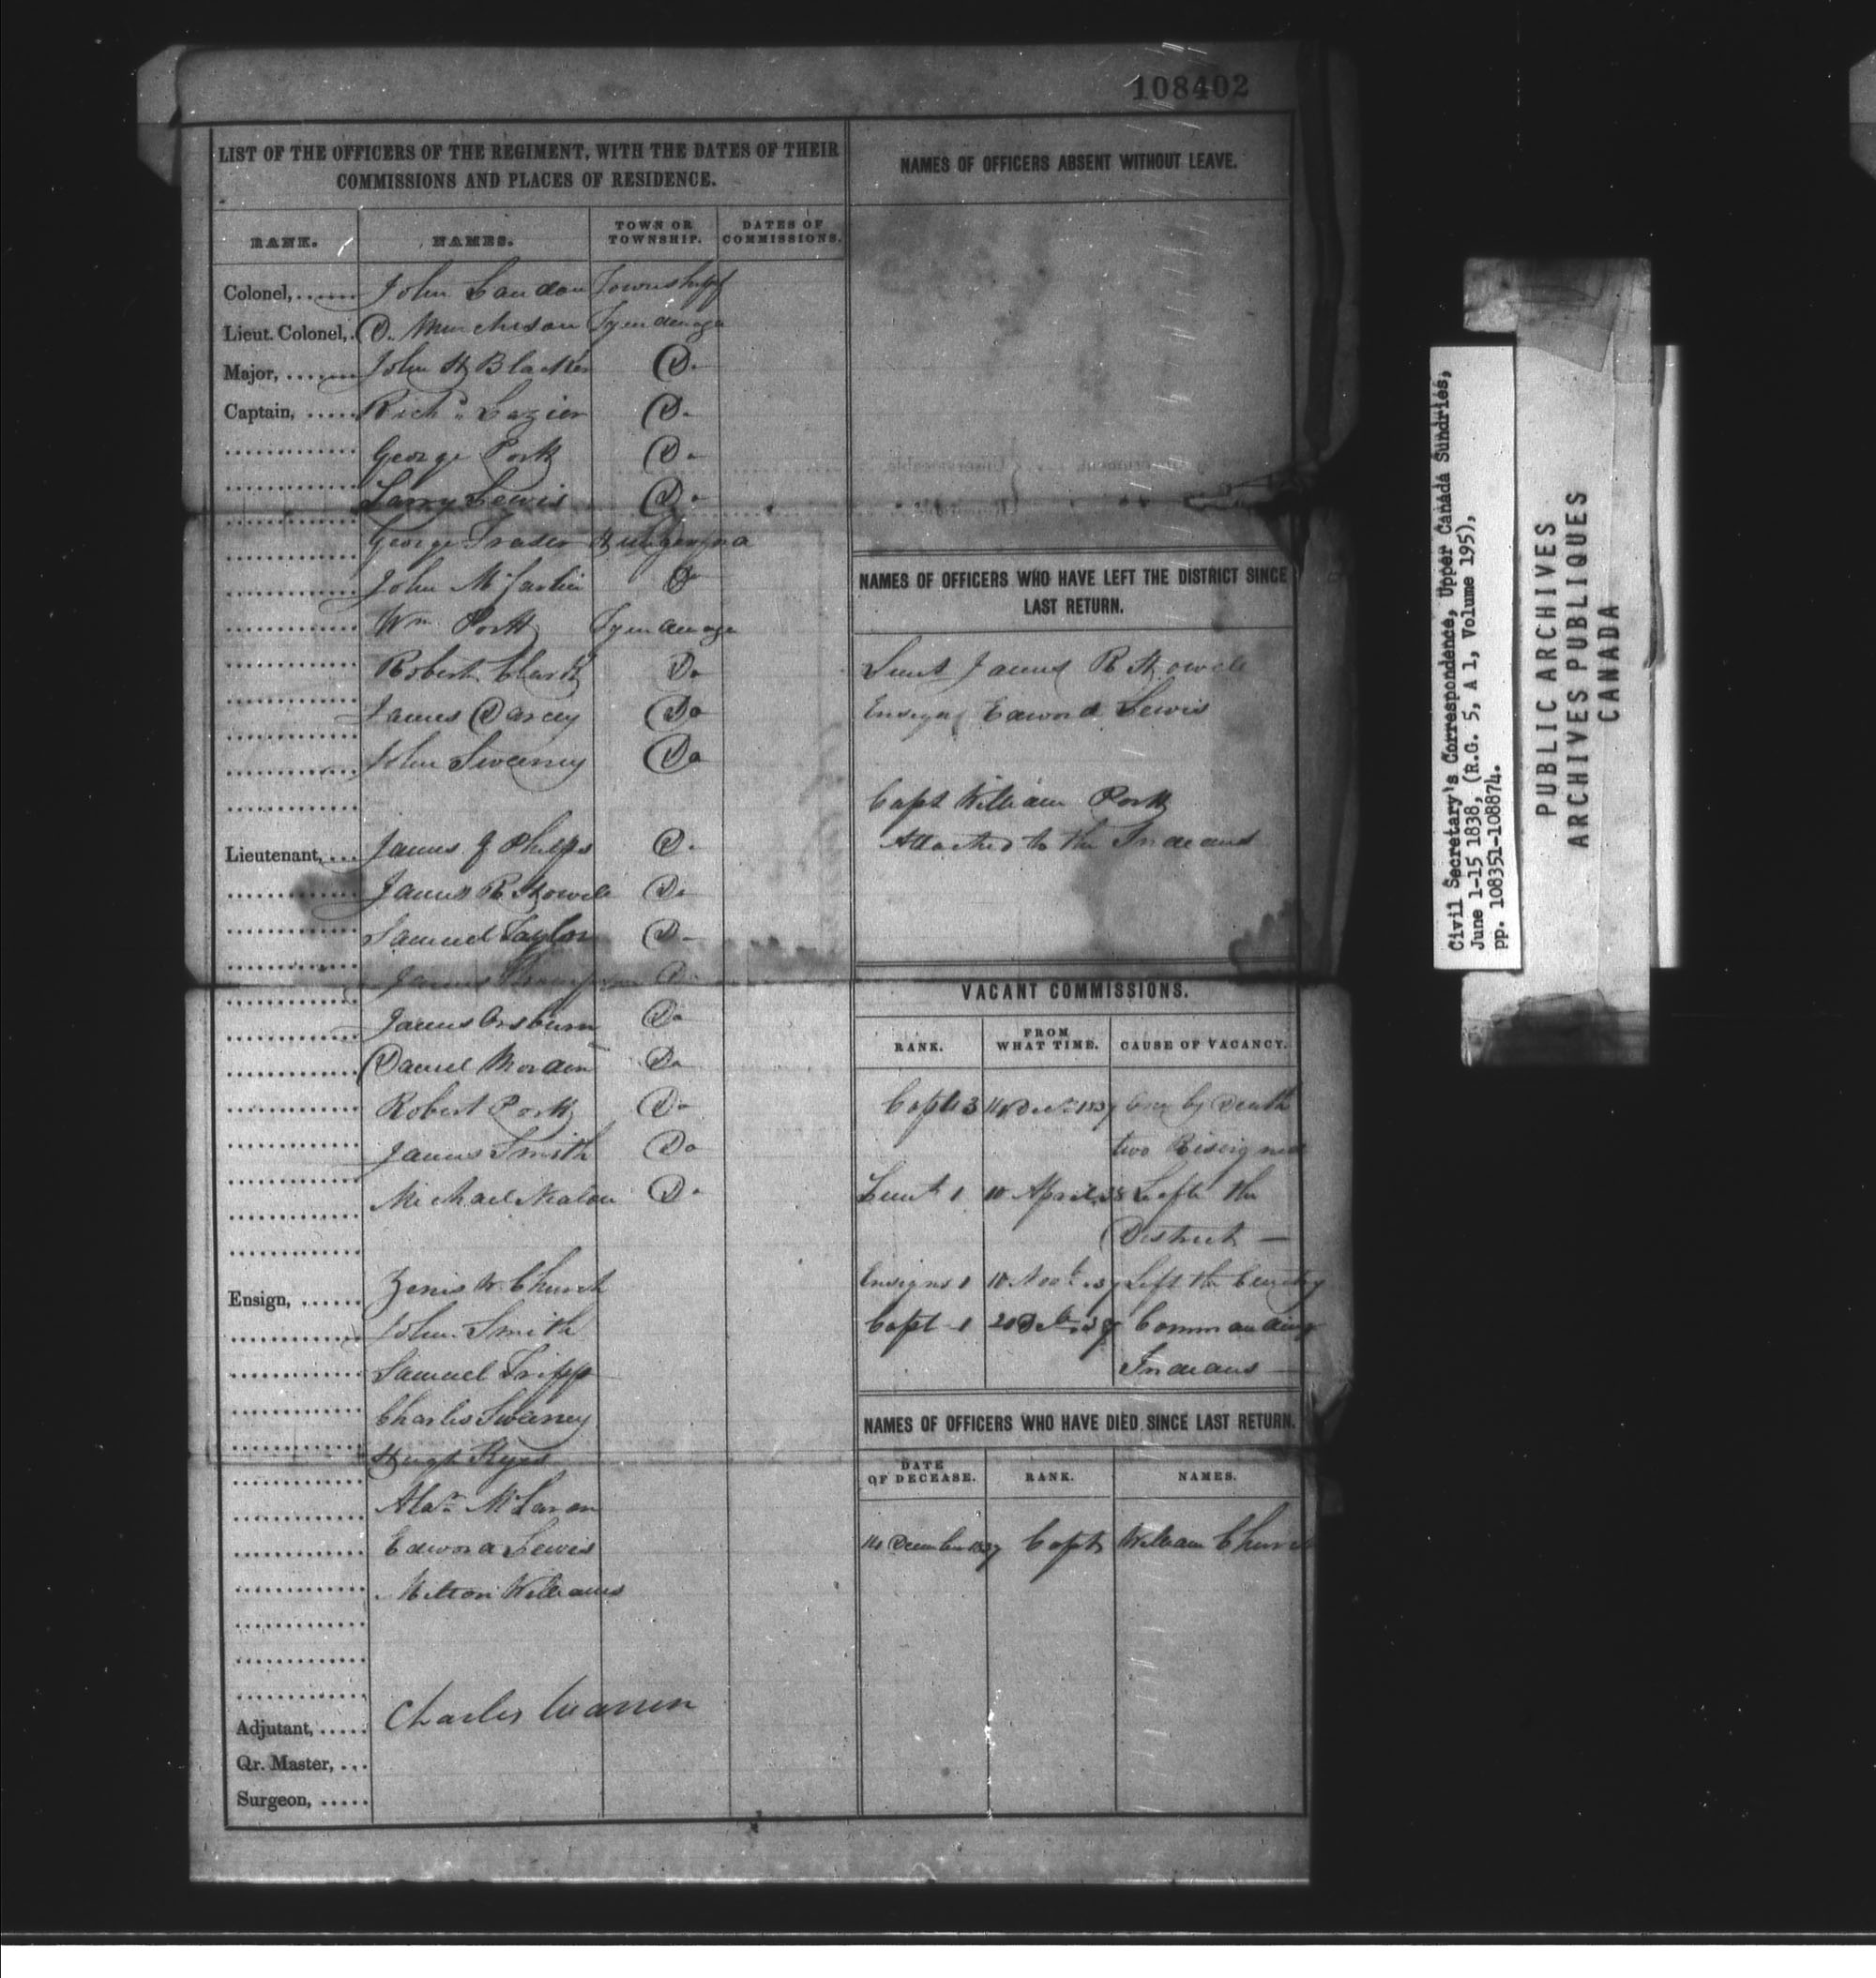 108402
LIST OF THE OFFICERS OF THE REGIMENT, WITH THE DATES OF THEIR
COMMISSIONS AND PLACES OF RESIDENCE.
RANK. NAMES. TOWN OR TOWNSHIP. DATES OF COMMISSIONS.
Colonel, John Landon Township
Lieut. Colonel, D. Murchison Tyendenaga
Major, John H Blacker Do
Captain, Richd Lazier Do
George Portt Do
Larry Lewis Do
George Fraser
John Do
Wm Portt Tyendenaga
Robert Clark Do
James Darcy Do
John Sweeney Do
Lieutenant, James J Phelps Do
James R Howele Do
Samuel Taylor Do
James Thompson Do
James Orsburn Do
Daniel Morden Do
Robert Portt Do
James Smith Do
Michael Nealon Do
Ensign, Zenis W. Church
John Smith
Samuel Tripp
Charles Sweeney
Hugh Keyes
Alxr McLaron
Edword Lewis
Milton Williams
Adjutant, Charles Warren
Qr. Master,
Surgeon,
NAMES OF OFFICERS ABSENT WITHOUT LEAVE.
NAMES OF OFFICERS WHO HAVE LEFT THE DISTRICT SINCE
LAST RETURN.
Lieut James R Howele
Ensign Edword Lewis
Capt William Portt
Attached to the Indians
VACANT COMMISSIONS.
RANK. FROM WHAT TIME. CAUSE OF VACANCY.
Capts 3 14 Decr 1837 One by Death
two Resigned
Lieut 1 10 April 38 Left the
District —
Ensigns 1 10 37 Left the Country
Capt 1 20 37 Commanding
Indians —
NAMES OF OFFICERS WHO HAVE DIED SINCE LAST RETURN.
DATE OF DECEASE. RANK. NAMES.
14 December 1837 Capt William Church
Civil Secretary's Correspondence, Upper Canada Sundries,
June 1-15 1838, (R.G. 5, A 1, Volume 195),
pp. 108351-108874.
PUBLIC ARCHIVES
ARCHIVES PUBLIQUES
CANADA